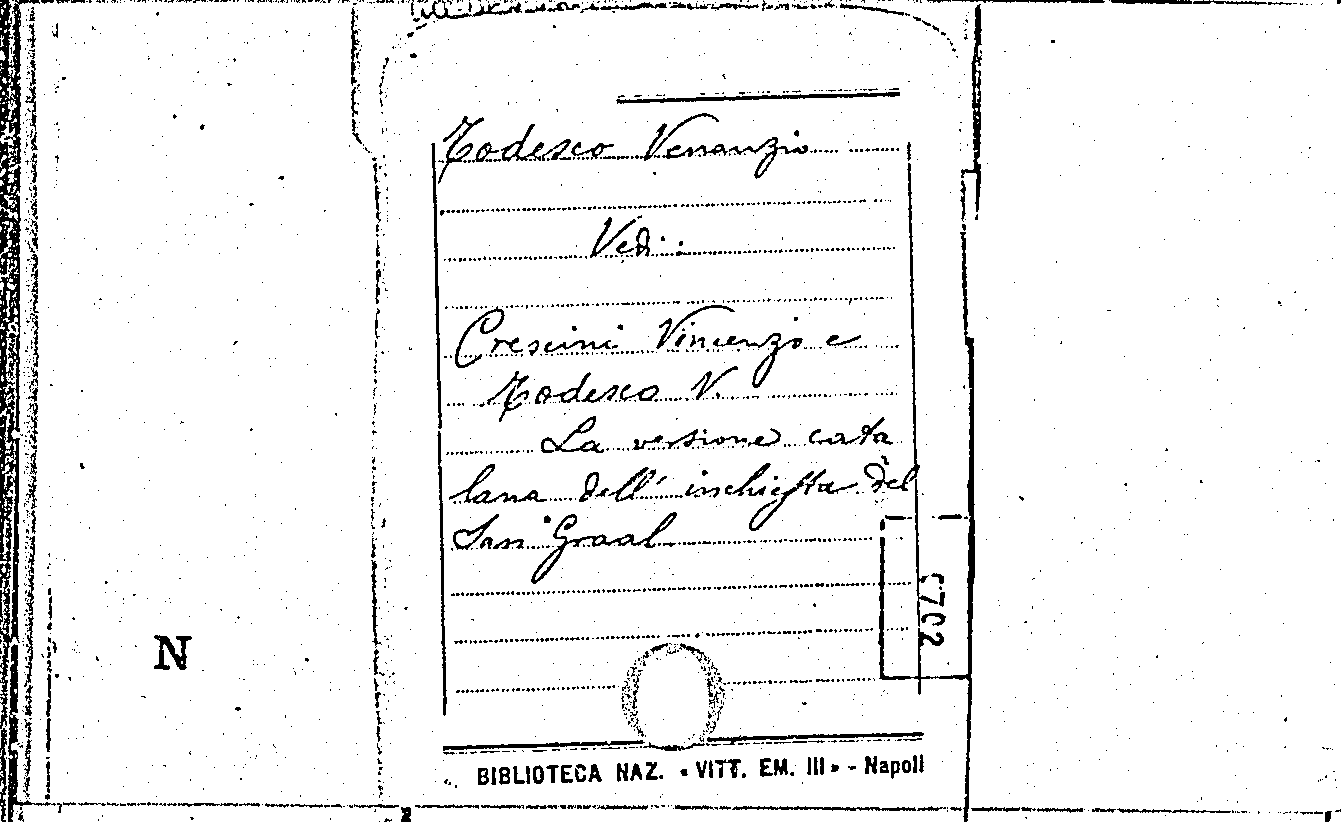 Todesco Venanzio
Vedi:
Crescini Vincenzo e
Todesco V.
La versione cata
lana dell' inchiesta del
San Graal
5702
N
BIBLIOTECA NAZ. « VITT. EM. III » - Napoli